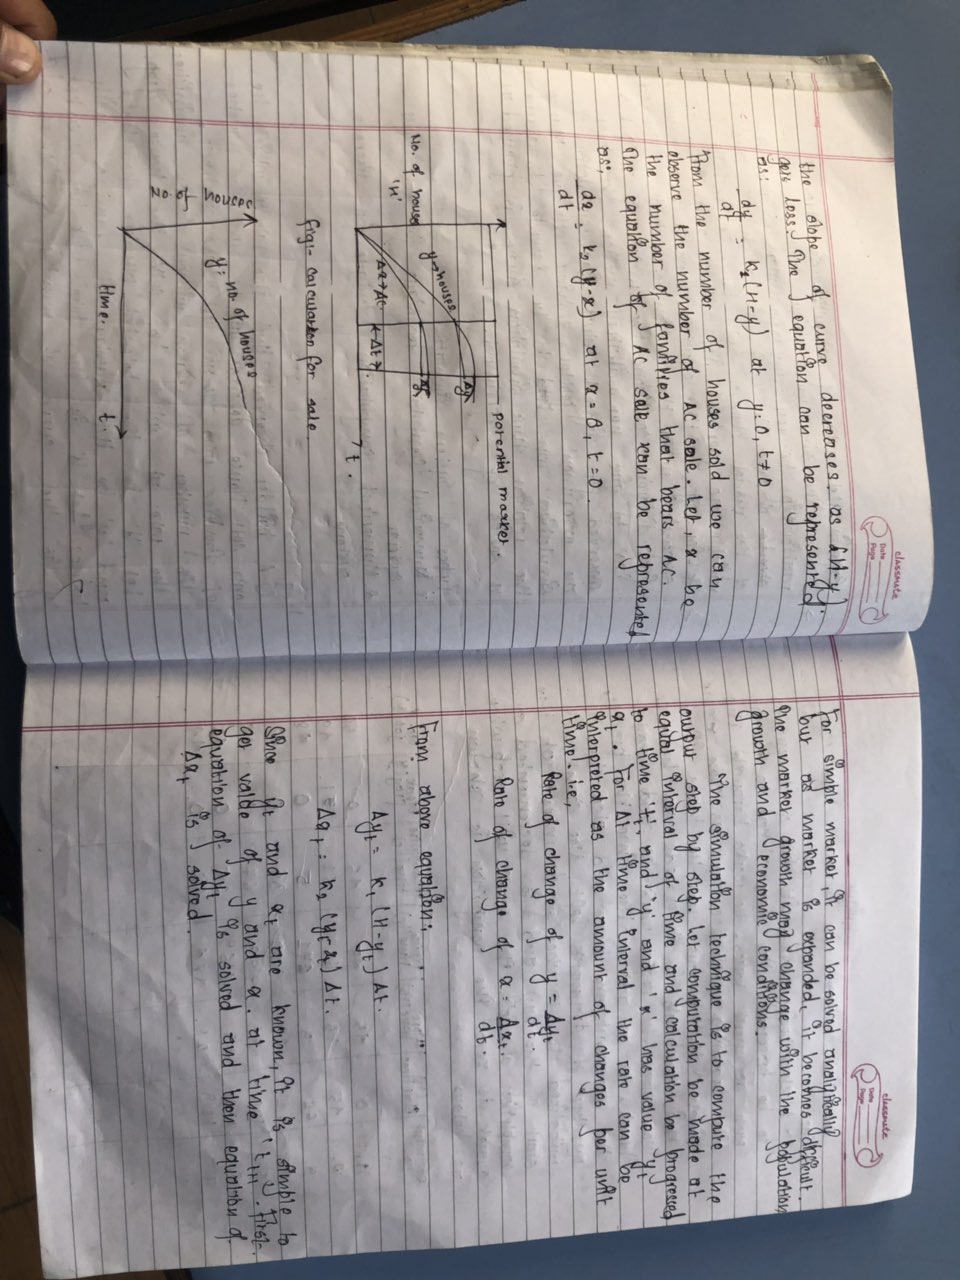 classmate
Date
Page
the slope of curve decreases as (H-y)
gets less. The equation can be represented
as:
dy/dt = k1(H-y) at y=0, t≠0
From the number of houses sold we can
observe the number of AC sale. Let, x be
the number of families that bears AC.
The equation of AC sale can be represented
as;
dx/dt = k2(y-x) at x=0, t=0.
potential market.
No. of houses
'n'
y→houses
Δx→AC
←Δt→
Δy
t.
fig:- calculation for sale
houses
no. of
y: no. of houses
time. t.
classmate
Date
Page
For simple market, it can be solved analytically
but as market is expanded, it becomes difficult.
The market growth may change with the population
growth and economic conditions.
The simulation technique is to compute the
output step by step. Let computation be made at
equal interval of time and calculation be progressed
to time 't', and 'y' and 'x' has value yt
xt. For Δt time interval the rate can be
interpreted as the amount of changes per unit
time. i.e,
Rate of change of y = Δyt/dt.
Rate of change of x = Δxt/dt.
From above equation;
Δyt = k1(H-yt)Δt.
Δxt = k2(yt-xt)Δt.
Since yt and xt are known, it is simple to
get value of y and x at time 't+1'. First
equation of Δyt is solved and then equation of
Δxt is solved.